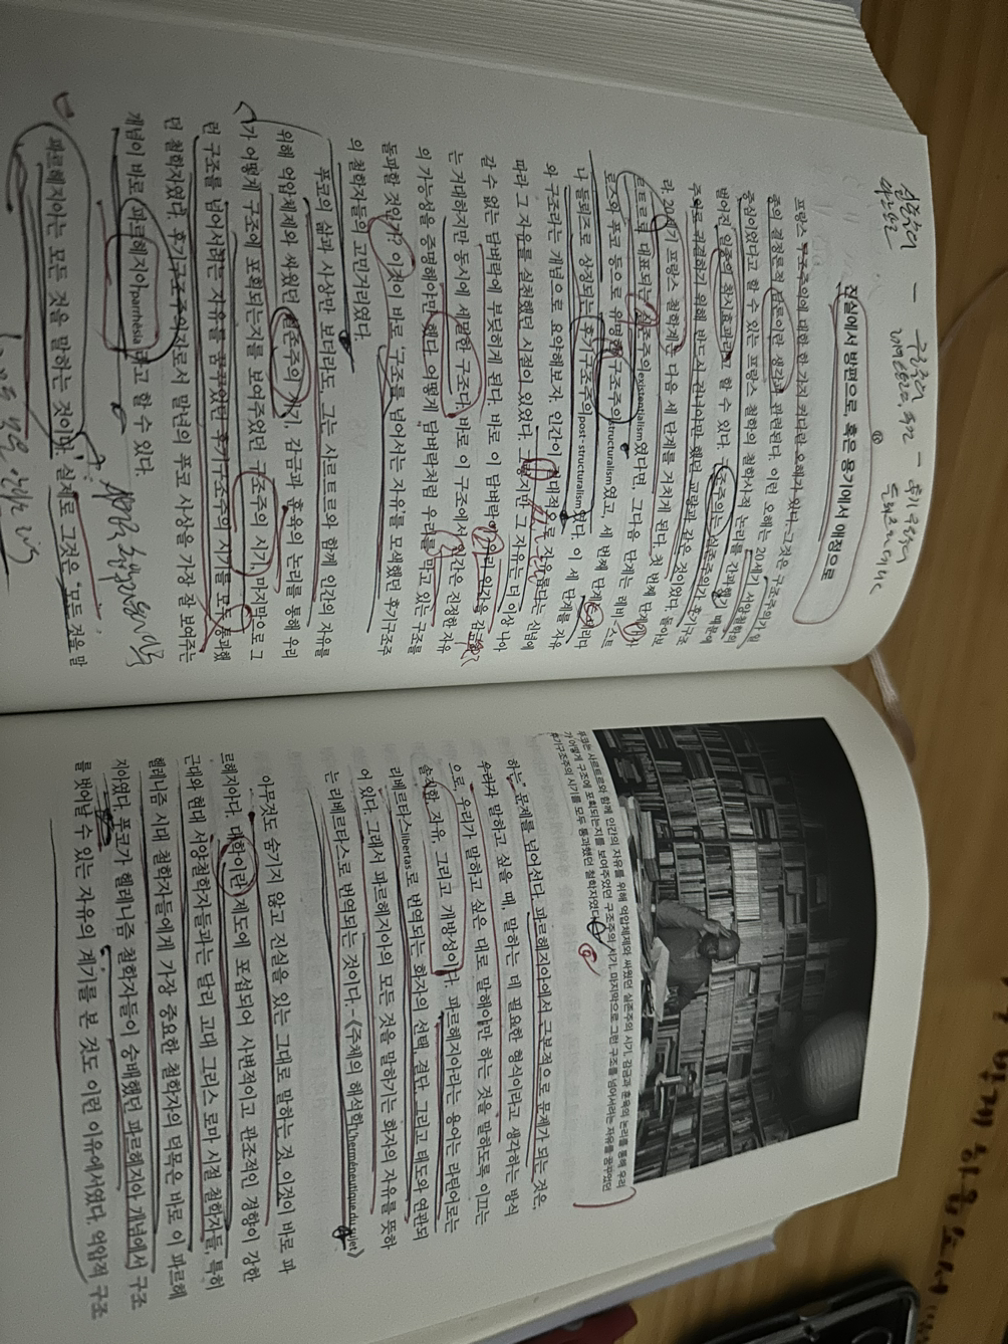 실존주의
진실에서 방편으로, 혹은 용기에서 애정으로
프랑스 구조주의에 대한 한 가지 커다란 오해가 있다. 그것은 구조주의가 일
종의 결정론적 담론이란 생각과 관련된다. 이런 오해는 20세기 서양철학의
중심이었다고 할 수 있는 프랑스 철학의 철학사적 논리를 간과했기 때문에
벌어진 일종의 착시효과라고 할 수 있다. 구조주의는 실존주의가 후기구조
주의로 귀결하기 위해 반드시 건너야만 했던 교량과 같은 것이었다. 돌아보
라. 20세기 프랑스 철학계는 다음 세 단계를 거치게 된다. 첫 번째 단계가 사
르트르로 대표되는 실존주의existentialism였다면, 그다음 단계는 레비-스트
로스와 푸코 등으로 유명한 구조주의structuralism였고, 세 번째 단계는
나 들뢰즈로 상징되는 후기구조주의post-structuralism였다. 이 세 단계를 자유
와 구조라는 개념으로 요약해보자. 인간이 절대적으로 자유롭다는 신념에
따라 그 자유를 실천했던 시절이 있었다. 그렇지만 그 자유는 더 이상 나아
갈 수 없는 담벼락에 부딪히게 된다. 바로 이 담벼락이 우리 인간을 감금하
는 거대하지만 동시에 세밀한 구조다. 바로 이 구조에서 인간은 진정한 자유
의 가능성을 증명해야만 했다. 어떻게 담벼락처럼 우리를 막고 있는 구조를
돌파할 것인가? 이것이 바로 '구조를 넘어서는 자유'를 모색했던 후기구조주
의 철학자들의 고민거리였다.
푸코의 삶과 사상만 보더라도, 그는 사르트르와 함께 인간의 자유를
위해 억압체제와 싸웠던 실존주의 시기, 감금과 훈육의 논리를 통해 우리
가 어떻게 구조에 포획되는지를 보여주었던 구조주의 시기, 마지막으로 그
런 구조를 넘어서려는 자유를 꿈꾸었던 후기구조주의 시기를 모두 통과했
던 철학자였다. 후기구조주의자로서 말년의 푸코 사상을 가장 잘 보여주는
개념이 바로 '파르헤지아parrhêsia'라고 할 수 있다.
파르헤지아는 모든 것을 말하는 것이다. 실제로 그것은 '모든 것을 말
푸코는 사르트르와 함께 인간의 자유를 위해 억압체제와 싸웠던 실존주의 시기, 감금과 훈육의 논리를 통해 우리
가 어떻게 구조에 포획되는지를 보여주었던 구조주의 시기, 마지막으로 그런 구조를 넘어서려는 자유를 꿈꾸었던
후기구조주의 시기를 모두 통과했던 철학자였다.
하는' 문제를 넘어선다. 파르헤지아에서 근본적으로 문제가 되는 것은,
우리가 말하고 싶을 때, 말하는 데 필요한 형식이라고 생각하는 방식
으로, 우리가 말하고 싶은 대로 말해야만 하는 것을 말하도록 이끄는
솔직함, 자유, 그리고 개방성이다. 파르헤지아라는 용어는 라틴어로는
리베르타스libertas로 번역되는 화자의 선택, 결단, 그리고 태도와 연관되
어 있다. 그래서 파르헤지아의 모든 것을 말하기는 화자의 자유를 뜻하
는 리베르타스로 번역되는 것이다. -《주체의 해석학L'herméneutique du sujet》
아무것도 숨기지 않고 진실을 있는 그대로 말하는 것, 이것이 바로 파
르헤지아다. 대학이란 제도에 포섭되어 사변적이고 관조적인 경향이 강한
근대와 현대 서양철학자들과는 달리 고대 그리스 로마 시절 철학자들, 특히
헬레니즘 시대 철학자들에게 가장 중요한 철학자의 덕목은 바로 이 파르헤
지아였다. 푸코가 헬레니즘 철학자들이 숭배했던 파르헤지아 개념에서 구조
를 벗어날 수 있는 자유의 계기를 본 것도 이런 이유에서였다. 억압적 구조